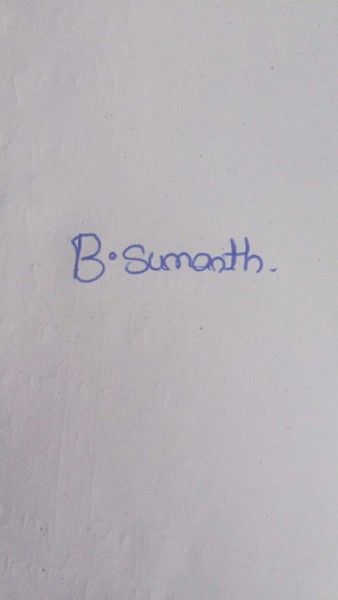 B. Sumanth.